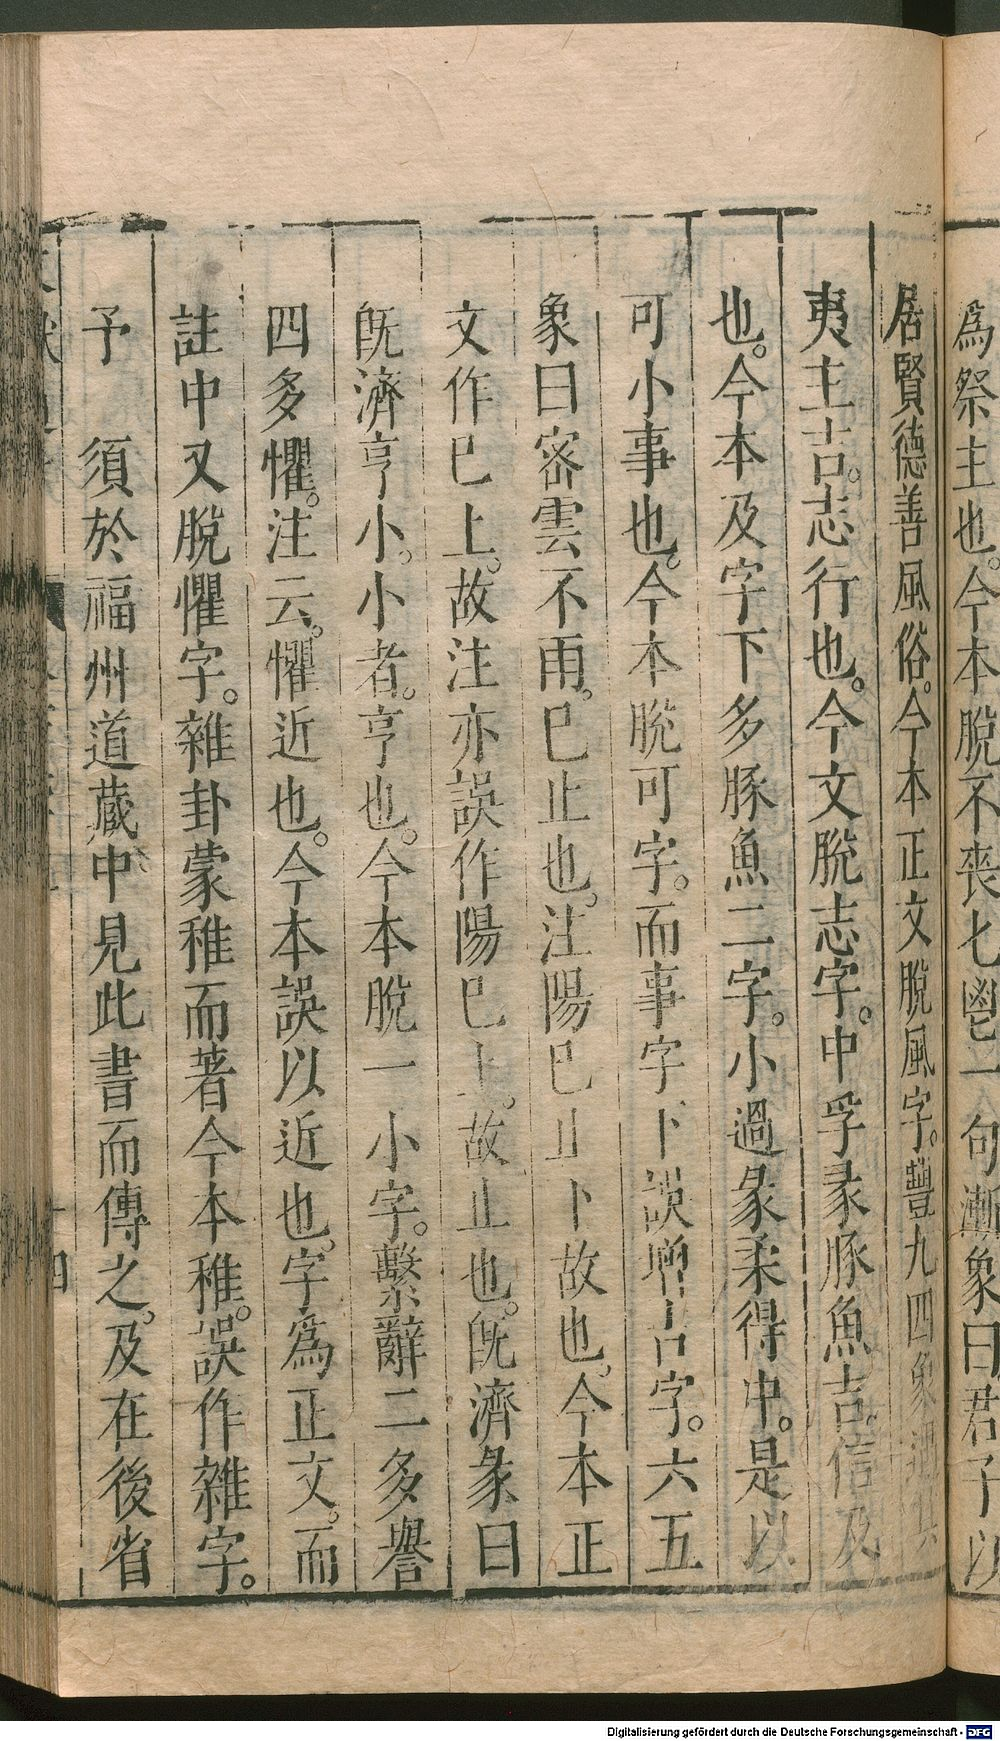 爲祭主也。今本脫不喪匕鬯一句漸象曰君子以
居賢德善風俗。今本正文脫風字。豐九四象遇其
夷主吉。志行也。今文脫志字。中孚彖豚魚吉。信及
也。今本及字下多豚魚二字。小過彖柔得中。是以
可小事也。今本脫可字。而事字下誤增吉字。六五
象曰密雲不雨。已止也。注陽已止下故也。今本正
文作已上。故注亦誤作陽已上。故止也。旣濟彖曰
旣濟亨小。小者。亨也。今本脫一小字。繫辭二多譽
四多懼。注云。懼近也。今本誤以近也。字爲正文。而
註中又脫懼字。雜卦蒙稚而著今本稚。誤作雜字。
予 須於福州道藏中見此書而傳之。及在後省
四
Digitalisierung gefördert durch die Deutsche Forschungsgemeinschaft - DFG